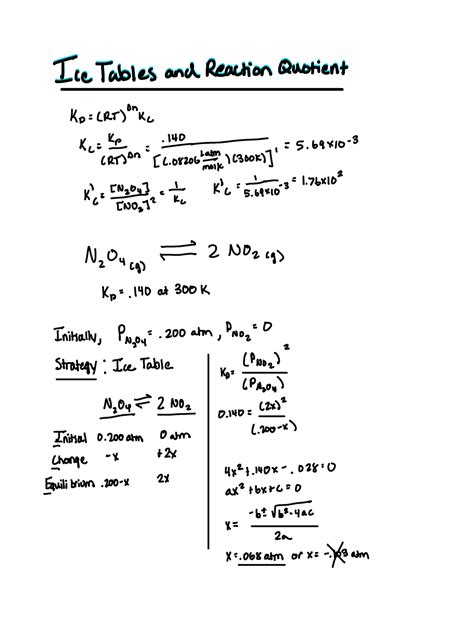 Ice Tables and Reaction Quotient
Kp = (RT)^Δn Kc
Kc = Kp / (RT)^Δn = .140 / [(.08206 L atm / mol K)(300K)]^1 = 5.69x10^-3
K'c = [N2O4] / [NO2]^2 = 1 / Kc    K'c = 1 / 5.69x10^-3 = 1.76x10^2
N2O4 (g) ⇌ 2 NO2 (g)
Kp = .140 at 300 K
Initially, P N2O4 = .200 atm, P NO2 = 0
Strategy: Ice Table
N2O4 ⇌ 2 NO2
Initial 0.200 atm 0 atm
Change -x +2x
Equilibrium .200-x 2x
Kp = (P NO2)^2 / (P N2O4)
0.140 = (2x)^2 / (.200-x)
4x^2 + .140x - .028 = 0
ax^2 + bx + c = 0
x = -b ± √b^2-4ac / 2a
x = .068 atm or x = atm